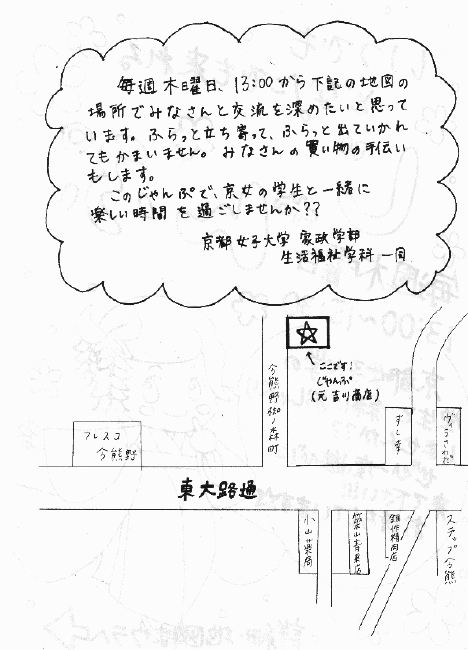 毎週木曜日、13:00から下記の地図の
場所でみなさんと交流を深めたいと思って
います。ふらっと立ち寄って、ふらっと出ていかれ
てもかまいません。みなさんの買い物の手伝い
もします。
このじゃんぷで、京女の学生と一緒に
楽しい時間を過ごしませんか??
京都女子大学 家政学部
生活福祉学科 一同
ここです!
じゃんぷ
(元吉川商店)
今熊野椥ノ森町
フレスコ
今熊野
すし幸
東大路通
小山薬局
ステップ今熊